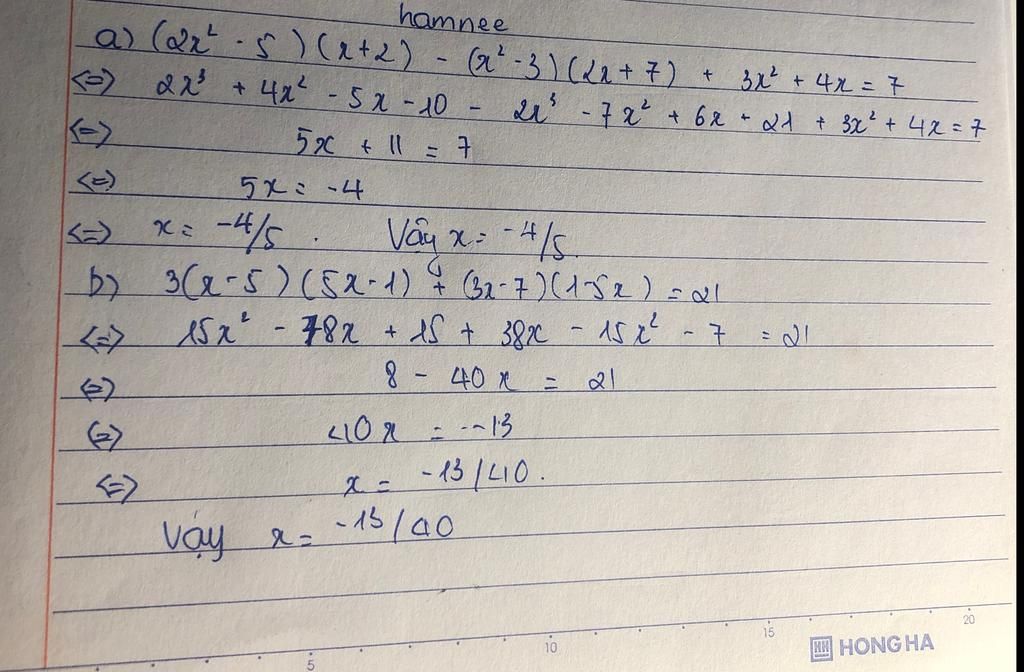 hamnee
a) (2x² - 5)(x+2) - (x² - 3)(2x + 7) + 3x² + 4x = 7
<=> 2x³ + 4x² - 5x - 10 - 2x³ - 7x² + 6x + 21 + 3x² + 4x = 7
<=> 5x + 11 = 7
<=> 5x = -4
<=> x = -4/5 . Vậy x = -4/5.
b) 3(x-5)(5x-1) + (3x-7)(1-5x) = 21
<=> 15x² - 78x + 15 + 38x - 15x² - 7 = 21
<=> 8 - 40x = 21
<=> 40x = -13
<=> x = -13/40.
Vậy x = -13/40
5 10 15 20
HONG HA